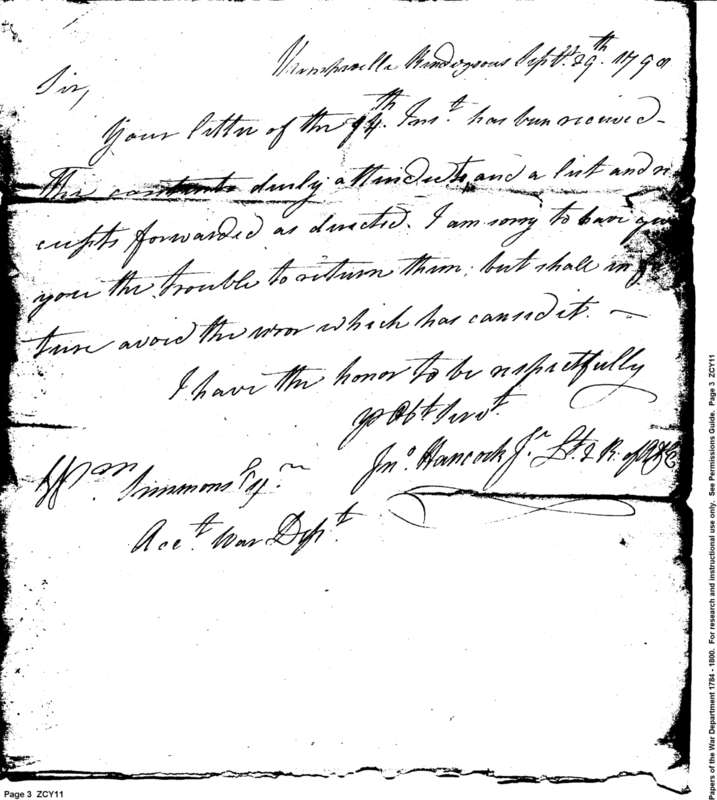 Rendezvous Sept. 29th. 1798
Sir,
Your letter of the 14th. Inst. has been received.
The contents duly attended to, and a list and re
ceipts forwarded as directed. I am sorry to have given
you the trouble to return them; but shall in fu
ture avoid the error which has caused it. —
I have the honor to be respectfully
yr Obt. Servt.
Jno. Hancock Jr. Lt. 2 R. of A & E
Wm. Simmons Esqr.
Acct. War Dept.
Page 3 ZCY11
Papers of the War Department 1784 - 1800. For research and instructional use only. See Permissions Guide. Page 3 ZCY11